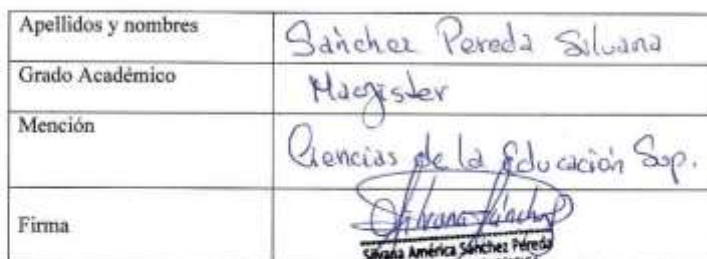 Apellidos y nombres Sánchez Pereda Silvana
Grado Académico Magister
Mención Ciencias de la Educación Sup.
Firma Silvana Sánchez
Silvana América Sánchez Pereda